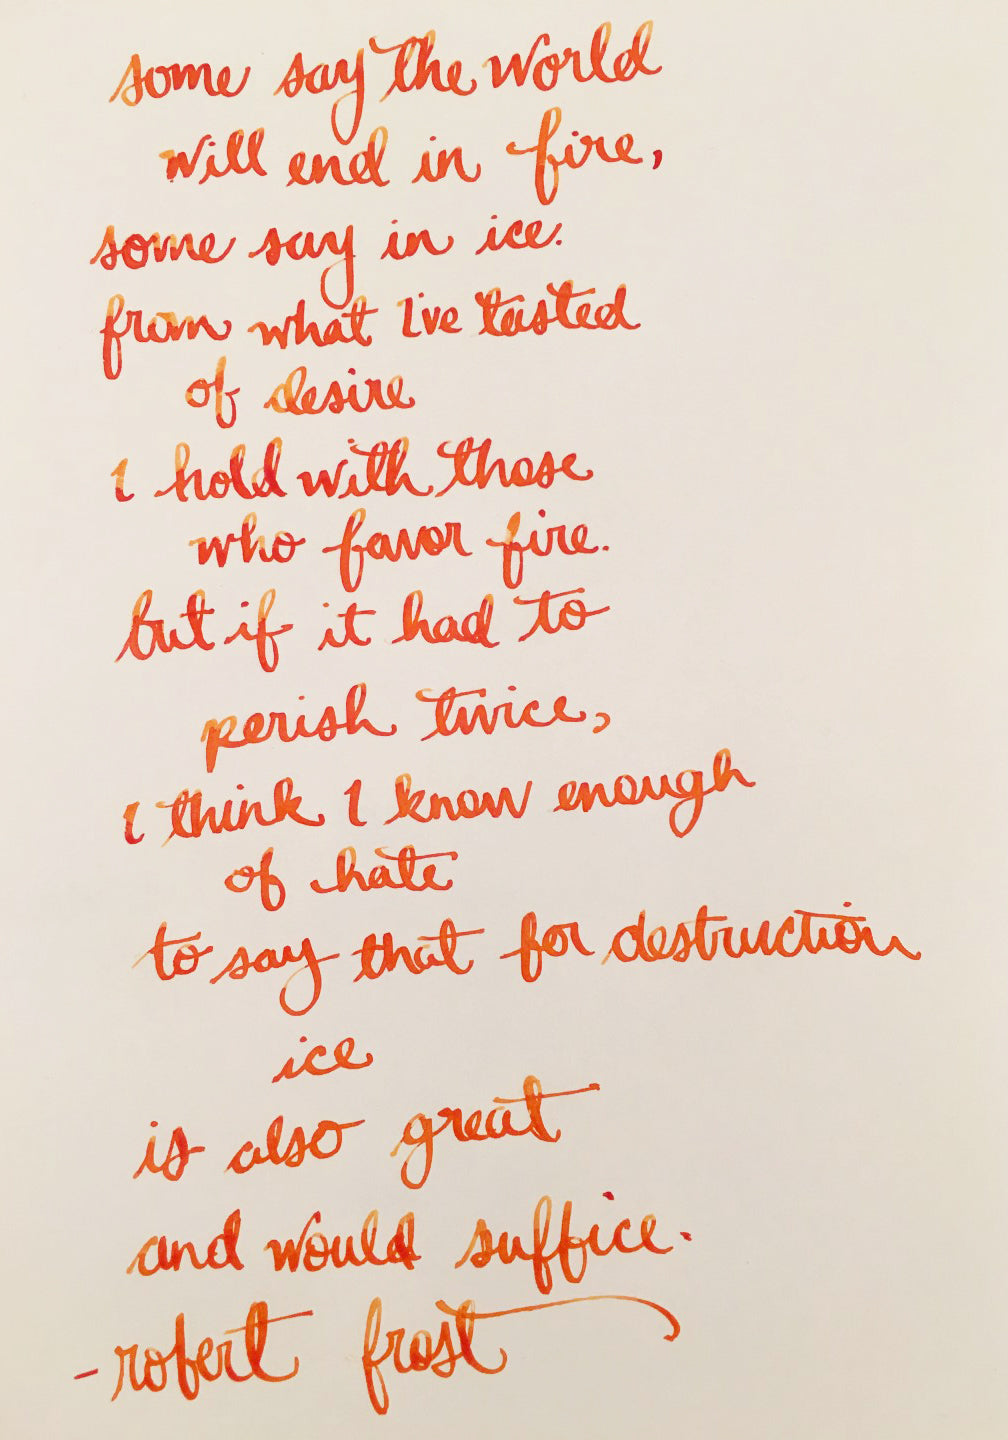 some say the world
will end in fire,
some say in ice.
from what I've tasted
of desire
I hold with those
who favor fire.
but if it had to
perish twice,
I think I know enough
of hate
to say that for destruction
ice
is also great
and would suffice.
- robert frost